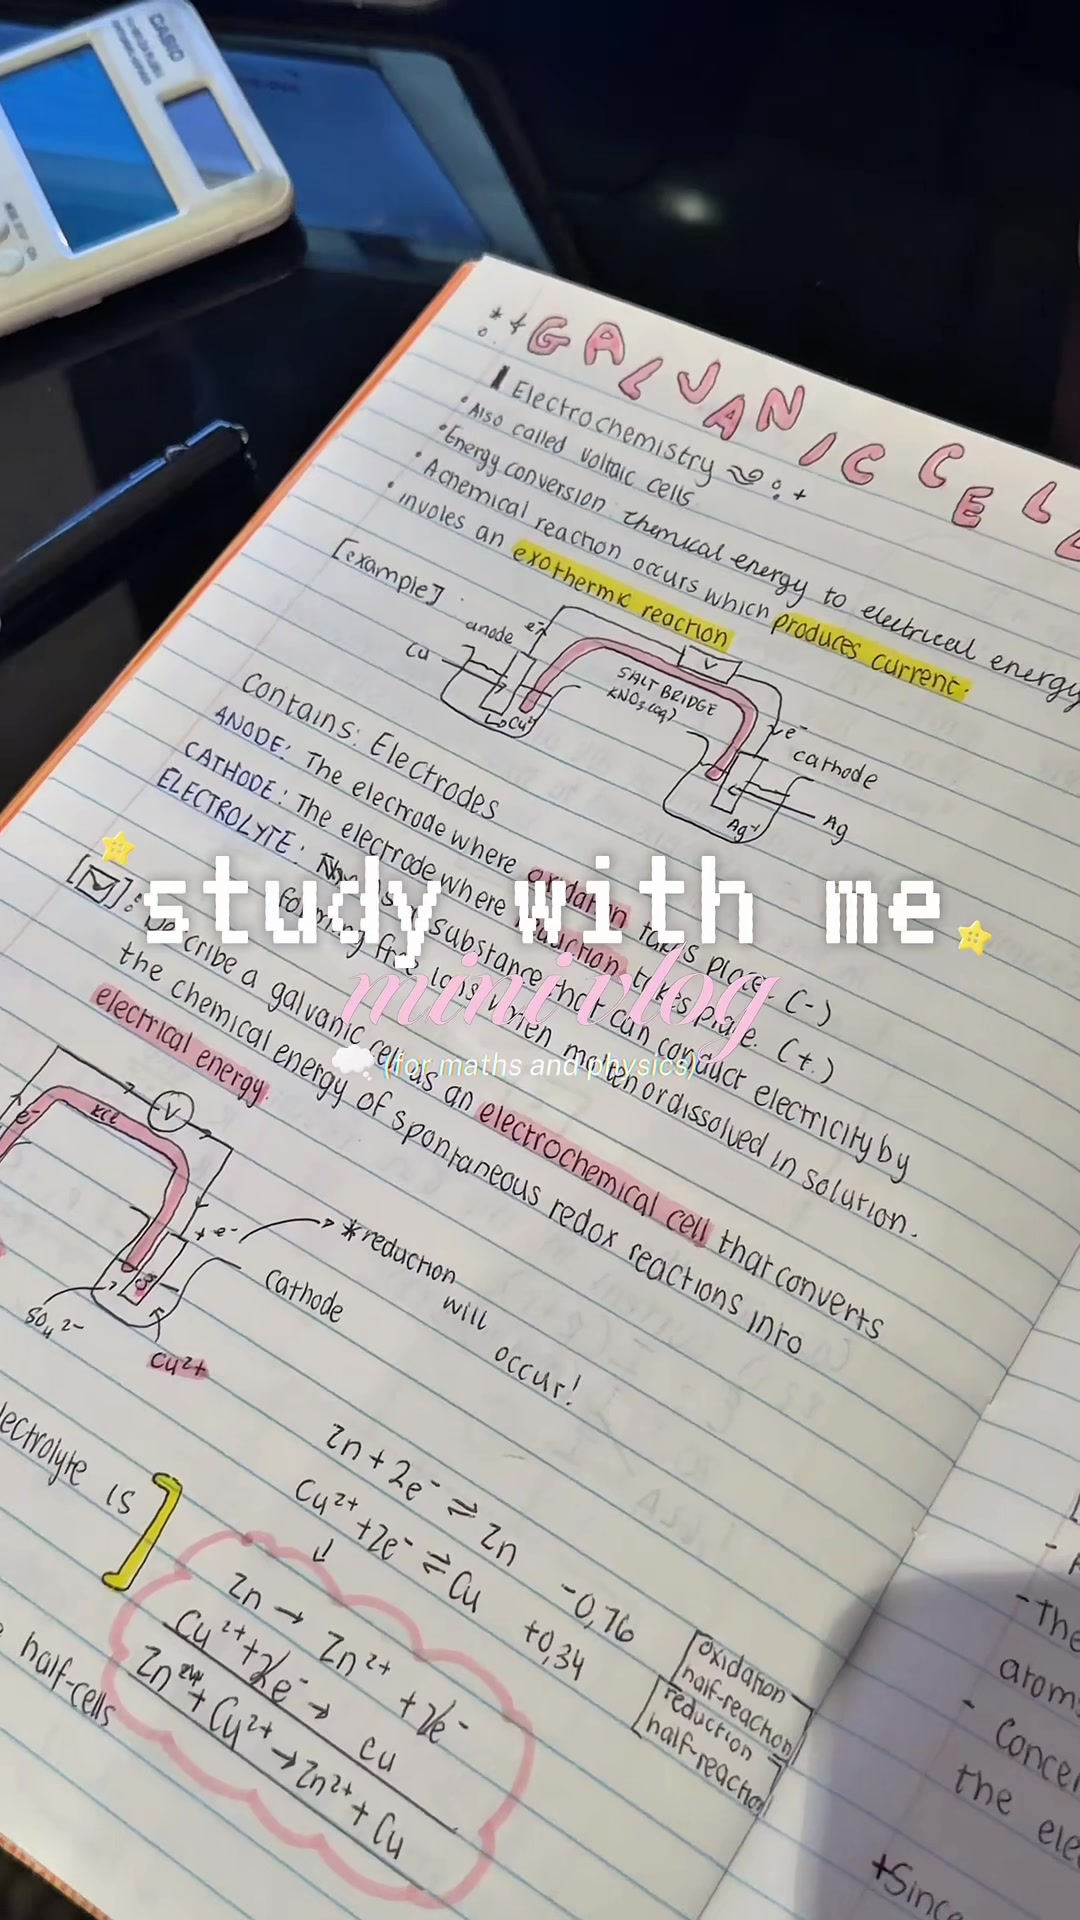 CASIO
GALVANIC CELL
Electrochemistry
• Also called voltaic cells
• Energy conversion chemical energy to electrical energy
• A chemical reaction occurs which produces current.
• involes an exothermic reaction
[example]
anode
e-
Cu
V
SALT BRIDGE
KNO3(aq)
e-
cathode
Ag
Ag+
Contains: Electrodes
ANODE: The electrode where oxidation takes place. (-)
CATHODE: The electrode where reduction takes place. (+)
ELECTROLYTE: substance that can conduct electricity by
forming free ions when molten or dissolved in solution.
study with me
mini vlog
(for maths and physics)
Describe a galvanic cell as an electrochemical cell that converts
the chemical energy of spontaneous redox reactions into
electrical energy.
e-
KCl
V
+ e-
*reduction
will
occur!
cathode
SO4 2-
Cu2+
lectrolyte is
half-cells
Zn + 2e- ⇌ Zn -0,76
Cu2+ + 2e- ⇌ Cu +0,34
↓
Zn → Zn2+ + 2e-
Cu2+ + 2e- → Cu
Zn + Cu2+ → Zn2+ + Cu
oxidation
half-reaction
reduction
half-reaction
- The
atom
- Concen
the ele
+Since